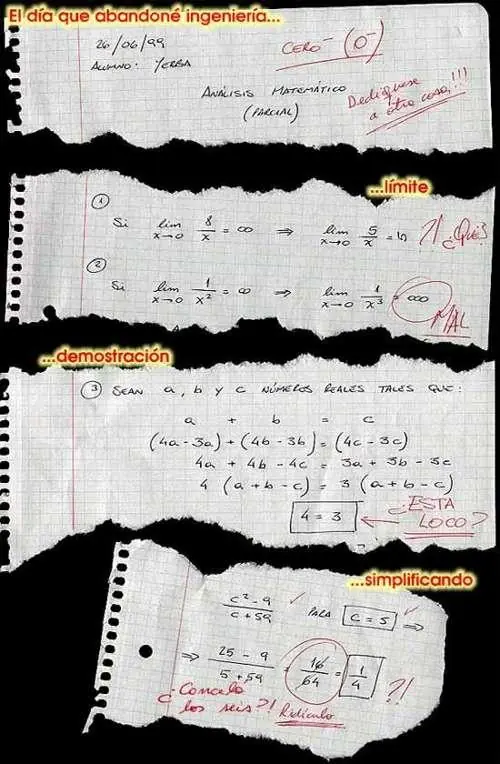 El día que abandoné ingeniería...
26/06/99
CERO⁻ (0⁻)
ALUMNO: YERBA
ANÁLISIS MATEMÁTICO
(PARCIAL)
Dedíquese
a otra cosa!!!
...límite
①
Si lim x→0 8/x = ∞ ⇒ lim x→0 5/x = տ ?! ¿QUÉ?
②
Si lim x→0 1/x² = ∞ ⇒ lim x→0 1/x³ = ooo
MAL
...demostración
③ SEAN a, b y c NÚMEROS REALES TALES QUE:
a + b = c
(4a-3a)+(4b-3b)=(4c-3c)
4a + 4b - 4c = 3a + 3b - 3c
4 (a+b-c) = 3 (a+b-c)
4 = 3
¿ESTA LOCO?
...simplificando
c²-9 / c+59 ✓ PARA c = 5 ✓ ⇒
⇒ 25-9 / 5+59 = 16/64 = 1/4 ?!
¿Cancelo
los seis?! Ridículo